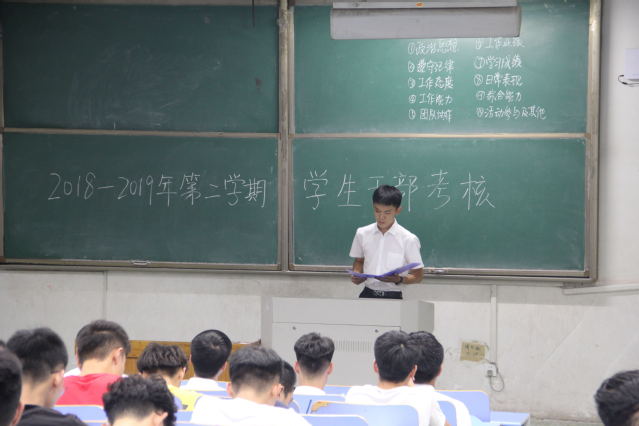 ①政治思想
②遵守纪律
③工作态度
④工作能力
⑤团队协作
⑥工作业绩
⑦学习成绩
⑧日常表现
⑨综合能力
⑩活动参与及其他
2018-2019年第二学期 学生干部考核